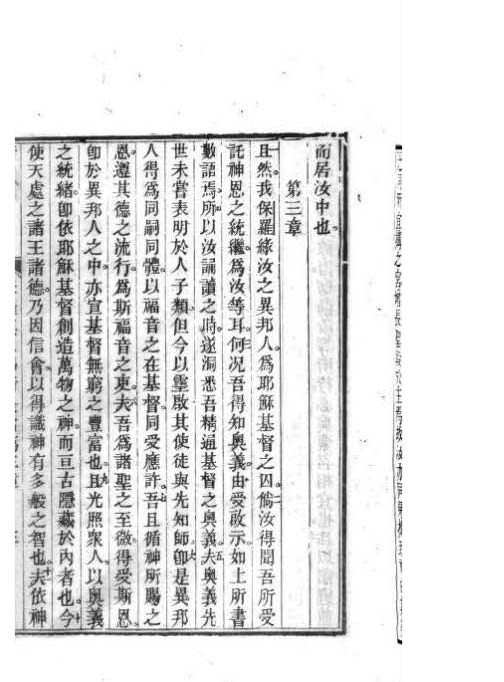 而居汝中也。
第三章
且然。我保羅緣汝之異邦人。爲耶穌基督之囚。倘汝得聞吾所受
託神恩之統繼。爲汝等耳。何况吾得知奧義。由受啟示如上所書
數語焉。所以汝誦讀之時。遂洞悉吾精通基督之奧義。夫奧義先
世未嘗表明於人子類。但今以靈啟其使徒與先知師。卽是異邦
人得爲同嗣同體。以福音之在基督。同受應許。吾且循神所賜之
恩。遵其德之流行。爲斯福音之吏。夫吾爲諸聖之至微。得受斯恩。
卽於異邦人之中。亦宣基督無窮之豐富也。且光照衆人。以奧義
之統緒。卽依耶穌基督創造萬物之神。而亘古隱藏於內者也。今
使天處之諸王諸德。乃因信會以得識神有多般之智也。夫依神